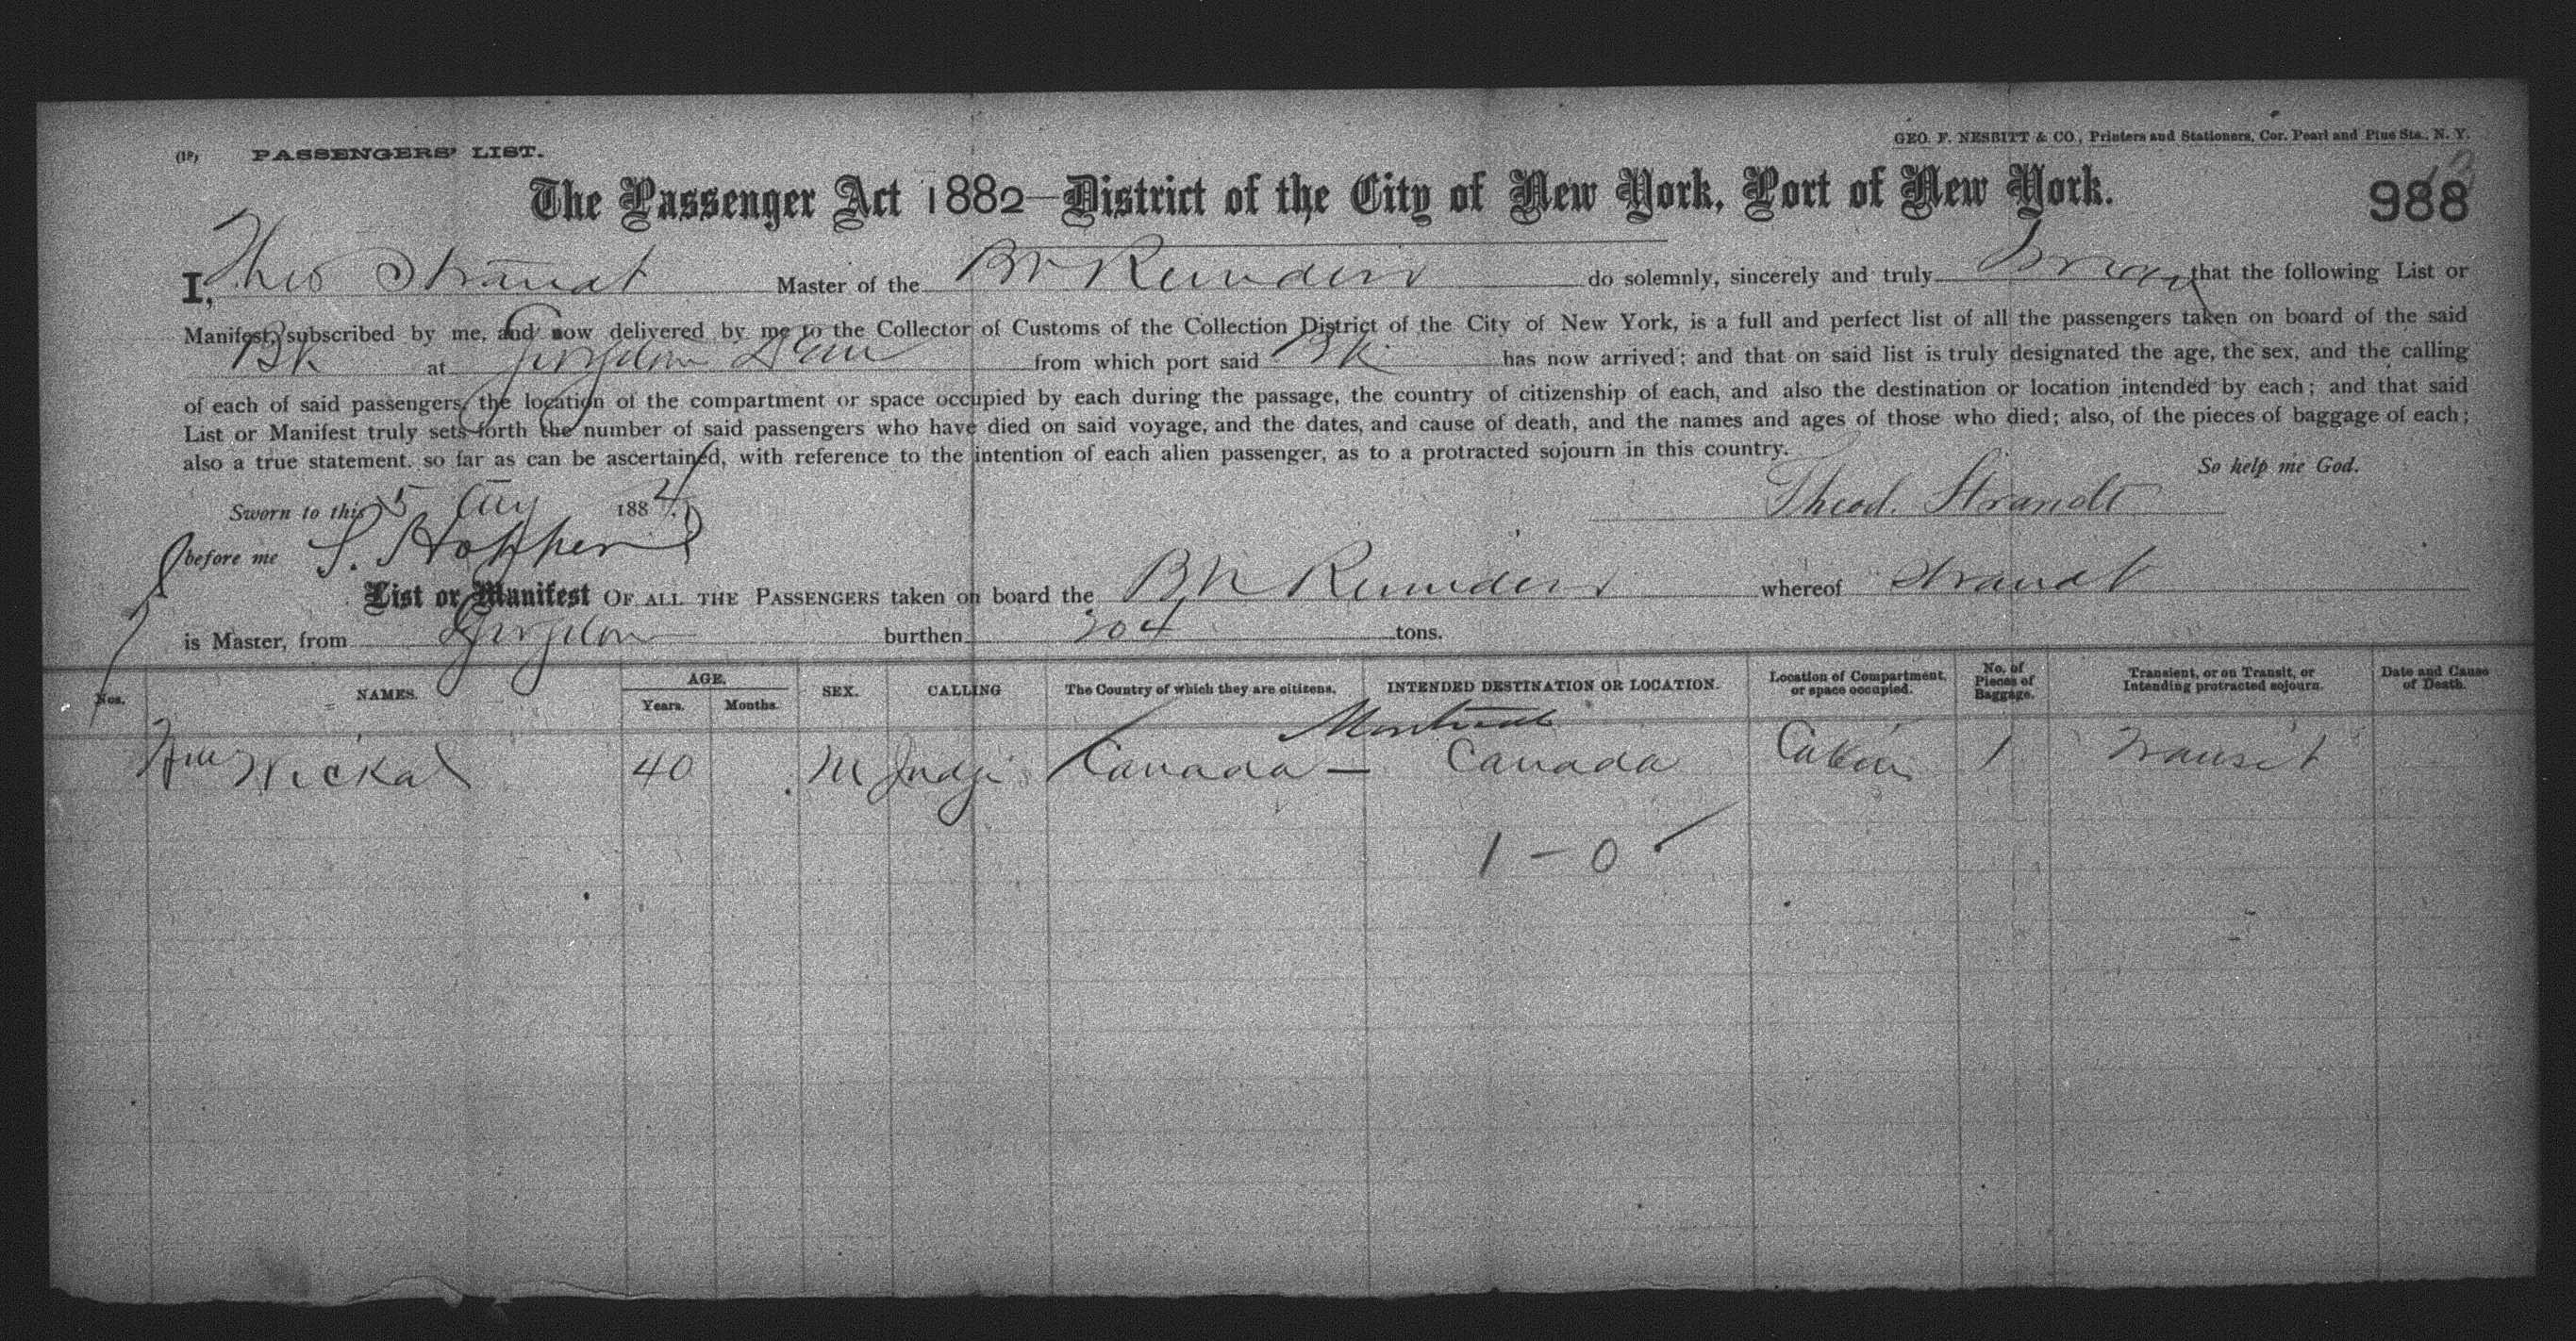 (18) PASSENGERS' LIST.
GEO. F. NESBITT & CO., Printers and Stationers, Cor. Pearl and Pine Sts., N. Y.
The Passenger Act 1882—District of the City of New York, Port of New York.
988
I, Theo Strandt Master of the do solemnly, sincerely and truly Swear that the following List or
Manifest, subscribed by me, and now delivered by me to the Collector of Customs of the Collection District of the City of New York, is a full and perfect list of all the passengers taken on board of the said
Bk at from which port said Bk has now arrived; and that on said list is truly designated the age, the sex, and the calling
of each of said passengers, the location of the compartment or space occupied by each during the passage, the country of citizenship of each, and also the destination or location intended by each; and that said
List or Manifest truly sets forth the number of said passengers who have died on said voyage, and the dates, and cause of death, and the names and ages of those who died; also, of the pieces of baggage of each;
also a true statement. so far as can be ascertained, with reference to the intention of each alien passenger, as to a protracted sojourn in this country.
So help me God.
Sworn to this 5 Aug 1884
Theod. Strandt
before me S. Hopper
List or Manifest OF ALL THE PASSENGERS taken on board the whereof Strandt
is Master, from burthen 304 tons.
Nos. NAMES. AGE. Years. Months. SEX. CALLING The Country of which they are citizens. INTENDED DESTINATION OR LOCATION. Location of Compartment, or space occupied. No. of Pieces of Baggage. Transient, or on Transit, or Intending protracted sojourn. Date and Cause of Death.
Montreal
Wm 40 M Judge Canada — Canada Cabin 1 Transit
1 — 0